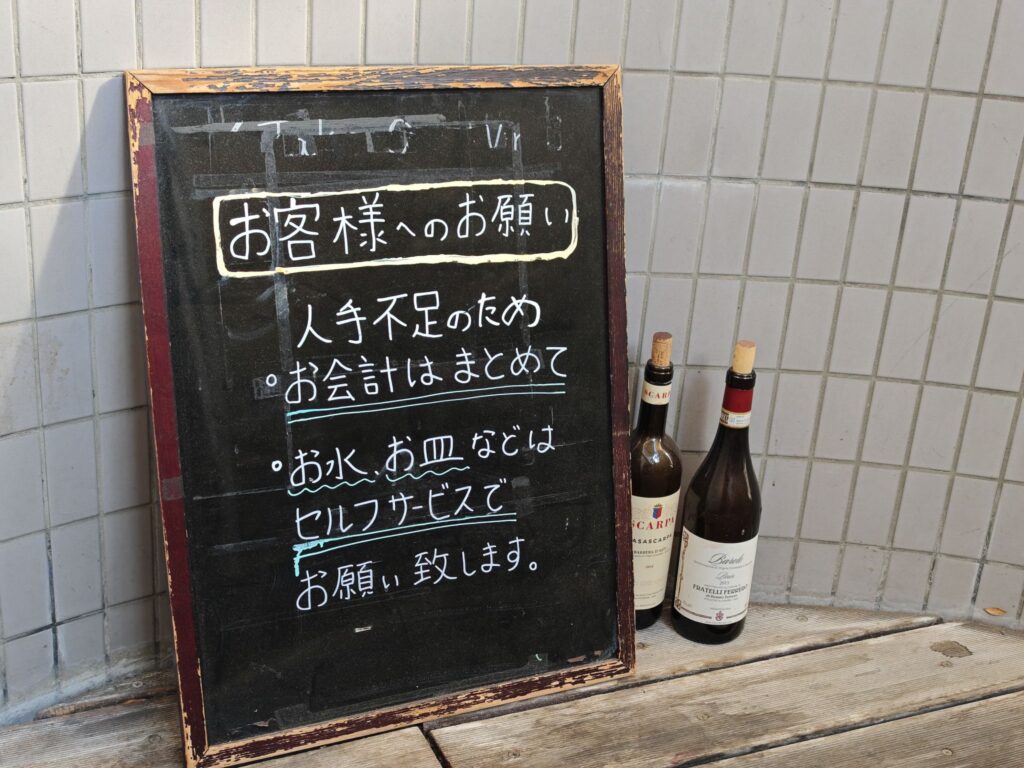 お客様へのお願い
人手不足のため
。お会計はまとめて
。お水、お皿などは
セルフサービスで
お願い致します。
SCARPA
CASASCARPA
BARBERA D'ASTI
Barolo
FRATELLI FERRERO